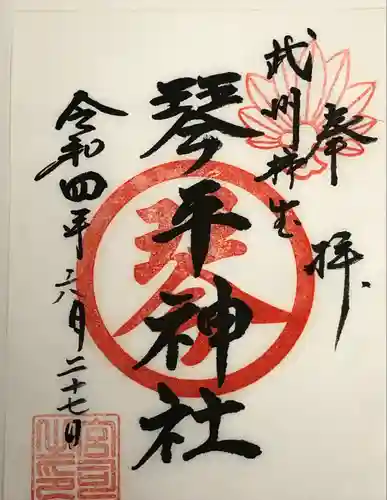 奉拝
武州柿生
琴平神社
令和四年六月二十七日